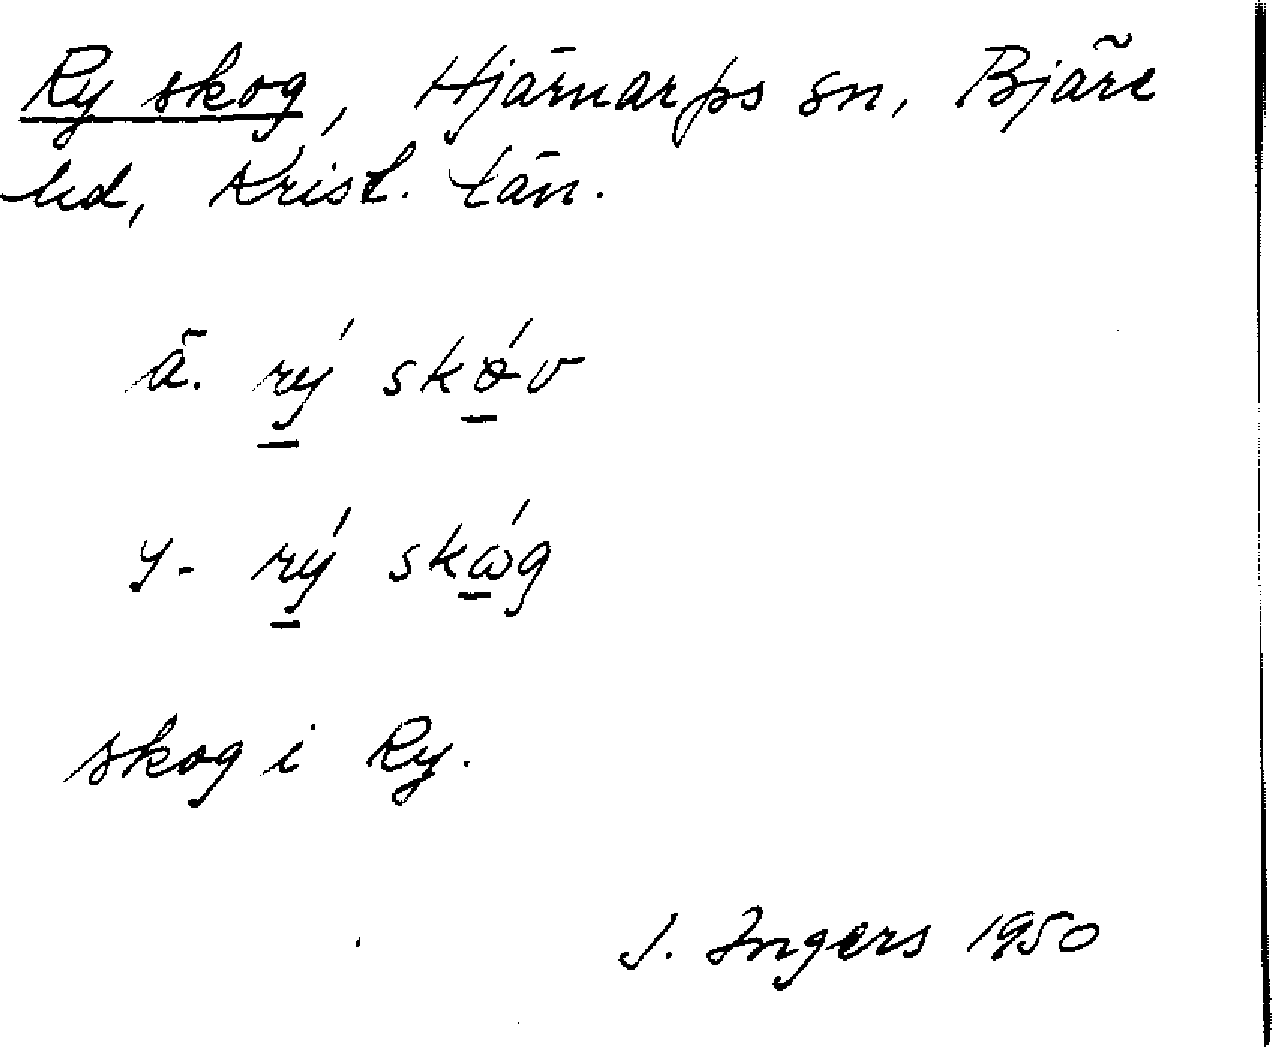 Ry skog, Hjärnarps sn, Bjäre
hd, Krist. län.
ä. rý skǿv
y. rý skǻg
skog i Ry.
J. Ingers 1950